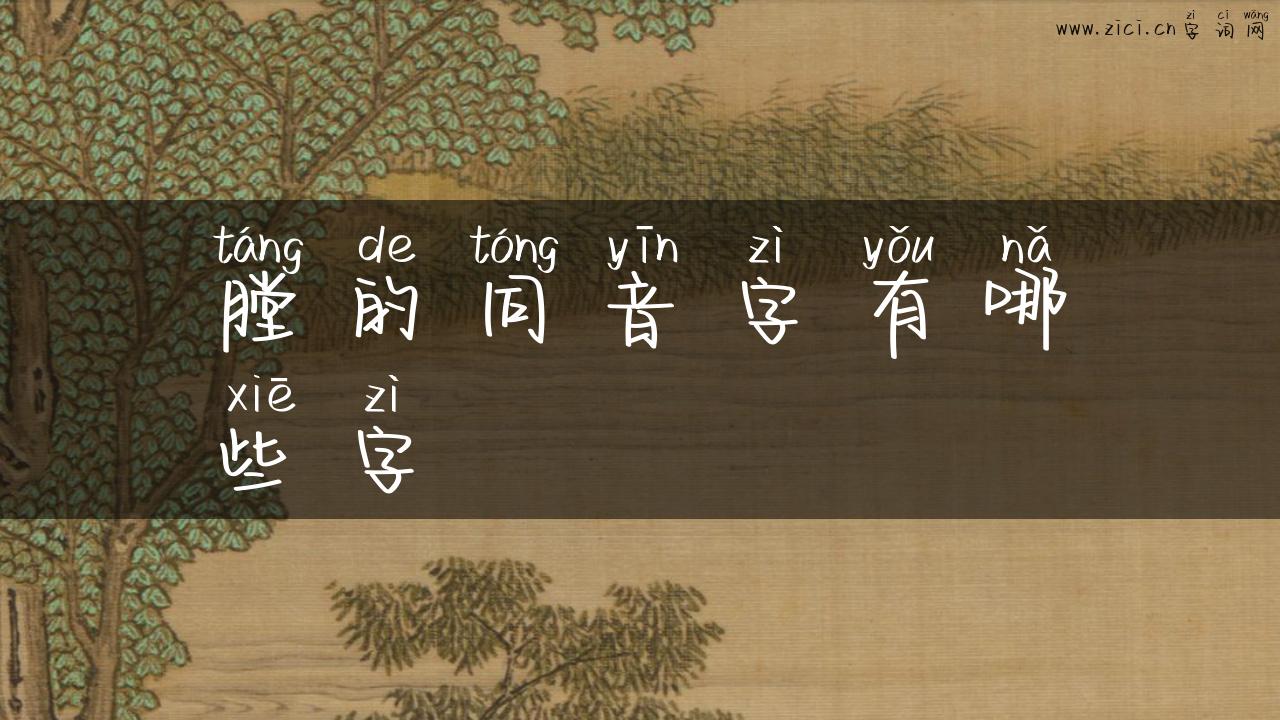 zì cí wǎng
www.zici.cn 字词网
táng de tóng yīn zì yǒu nǎ
膛的同音字有哪
xiē zì
些字